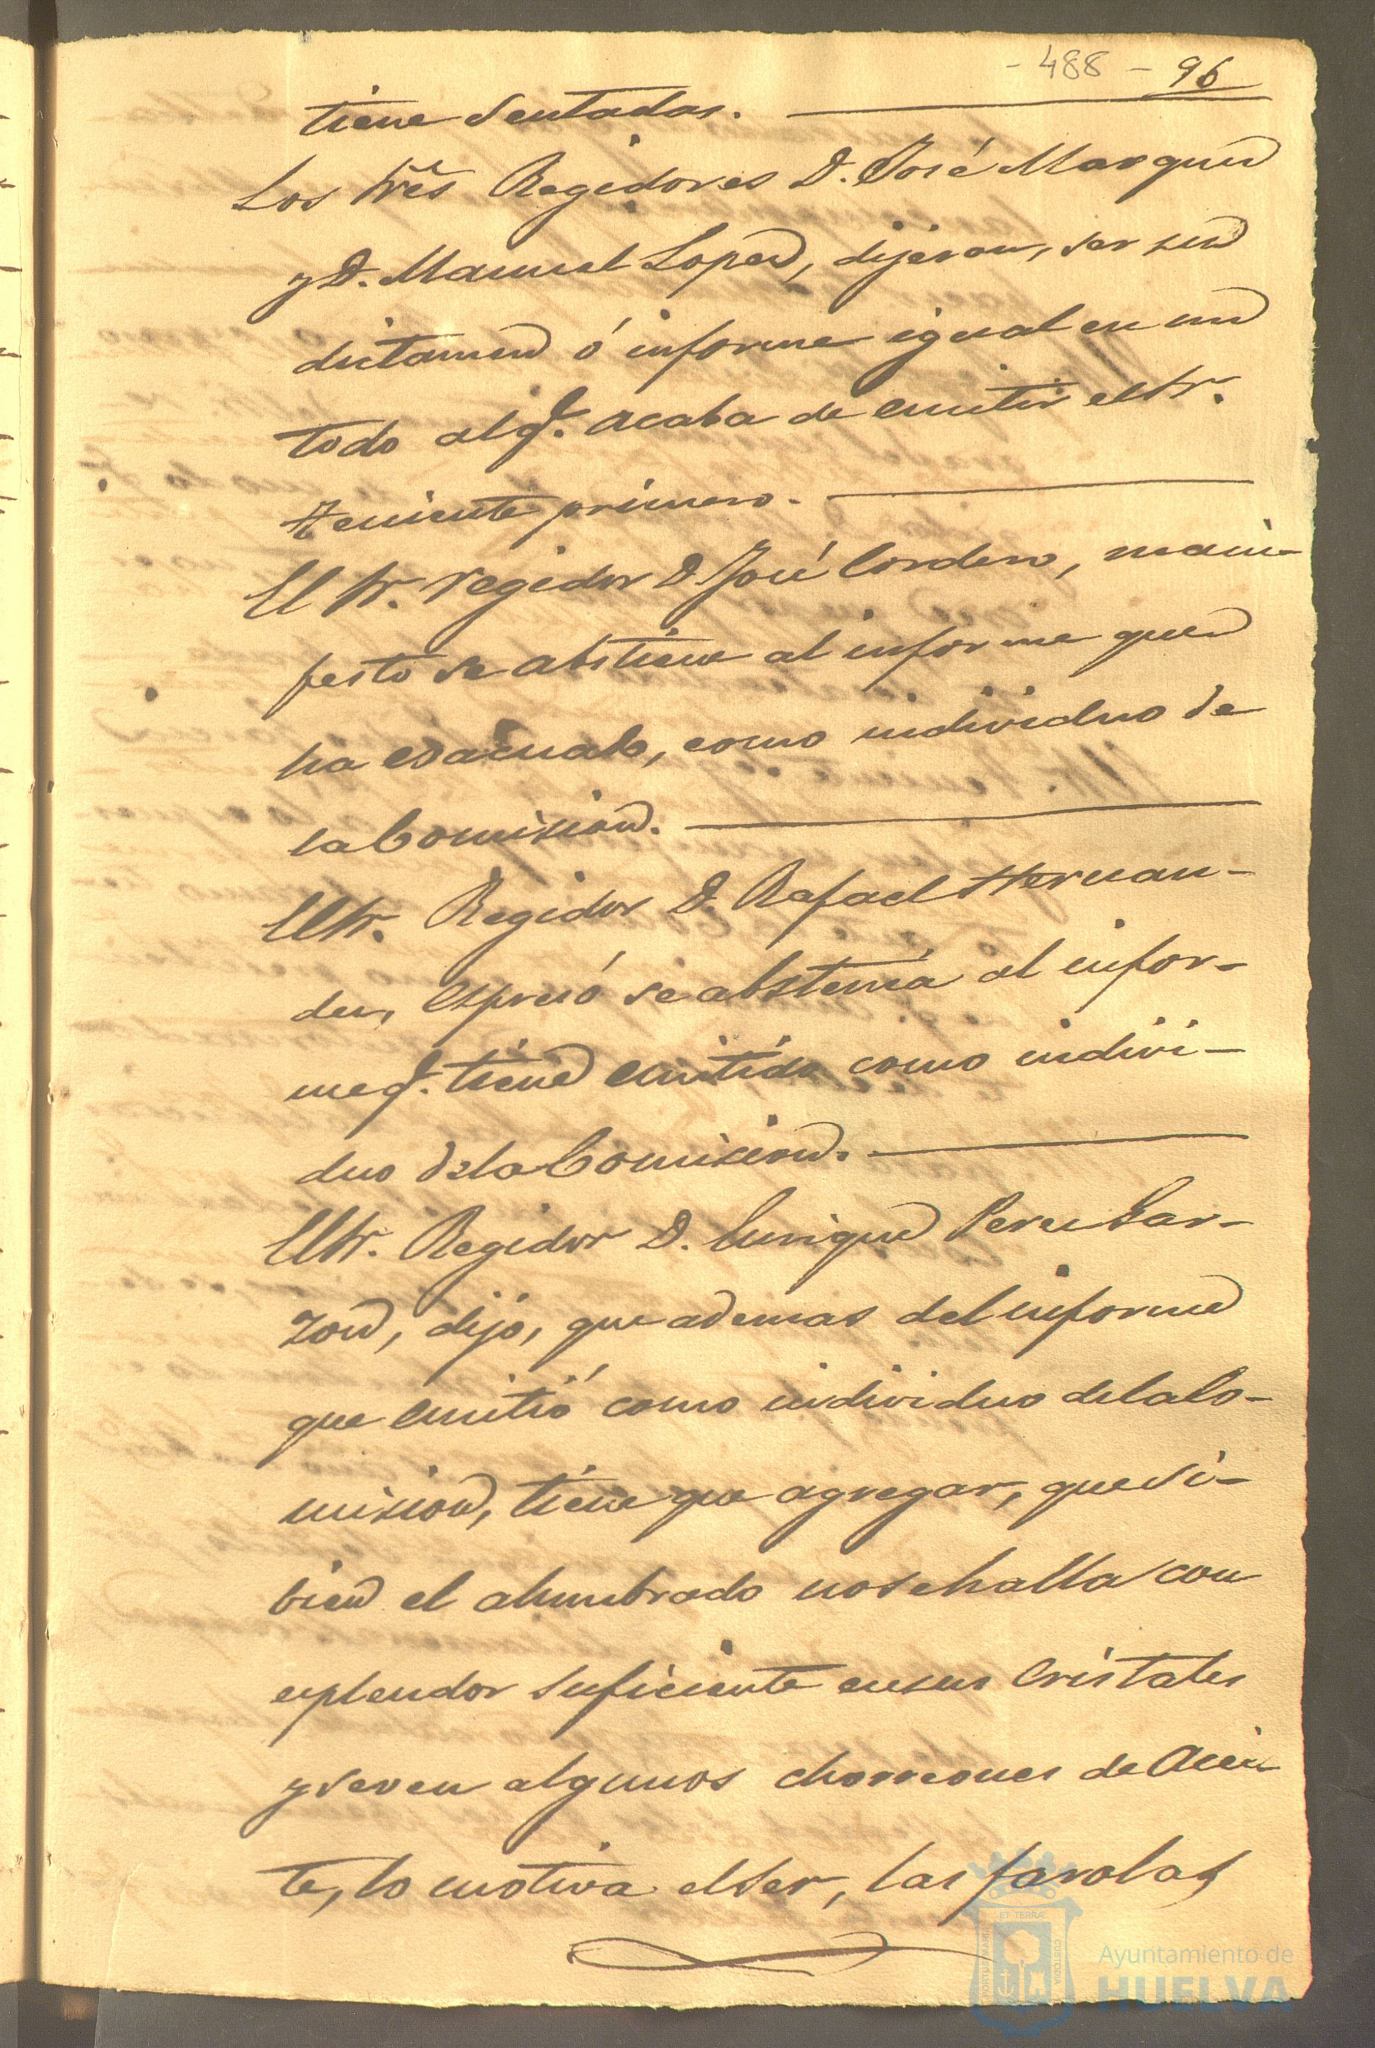 - 488 - 96
tiene sentadas.
Los Sres Regidores D. José Marquez
y D. Manuel Lopez, dijeron, ser su
dictamen ó informe igual en un
todo al q.e acaba de emitir el Sr.
teniente primero.
El Sr. regidor D. José Cordero, mani-
festo se abstiene al informe que
ha evacuado, como individuo de
la Comision.
El Sr. Regidor D. Rafael Hernan-
dez, espresó se abstenia al infor-
me q.e tiene emitido como indivi-
duo de la Comision.
El Sr. Regidor D. Enrique Perez Gar-
zon, dijo, que ademas del informe
que emitió como individuo de la Co-
mision, tiene que agregar, que si-
bien el alumbrado no se halla con
esplendor suficiente en sus cristales
y se ven algunos chorreones de acei-
te, lo motiva el ser, las farolas
ET TERRAE
CUSTODIA
Ayuntamiento de
HUELVA